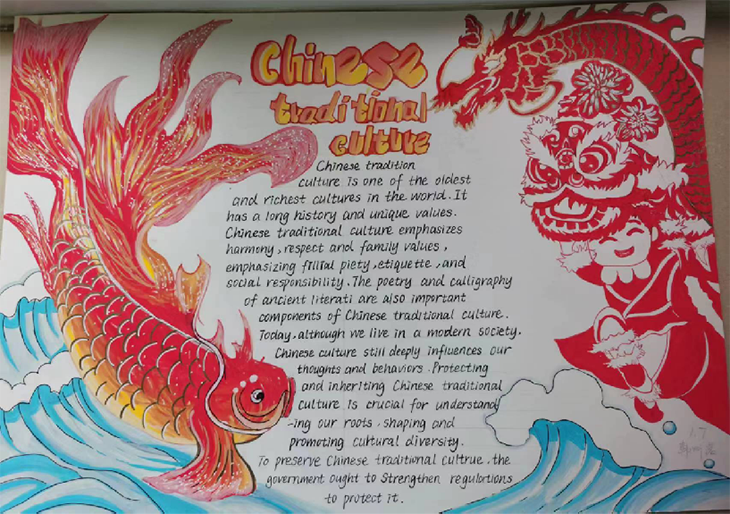 Chinese
traditional
culture
Chinese tradition
culture is one of the oldest
and richest cultures in the world. It
has a long history and unique values.
Chinese traditional culture emphasizes
harmony, respect and family values,
emphasizing filial piety, etiquette, and
social responsibility. The poetry and calligraphy
of ancient literati are also important
components of Chinese traditional culture.
Today, although we live in a modern society.
Chinese culture still deeply influences our
thoughts and behaviors. Protecting
and inheriting Chinese traditional
culture is crucial for understand
-ing our roots, shaping and
promoting cultural diversity.
To preserve Chinese traditional cultrue, the
government ought to strengthen regulations
to protect it.